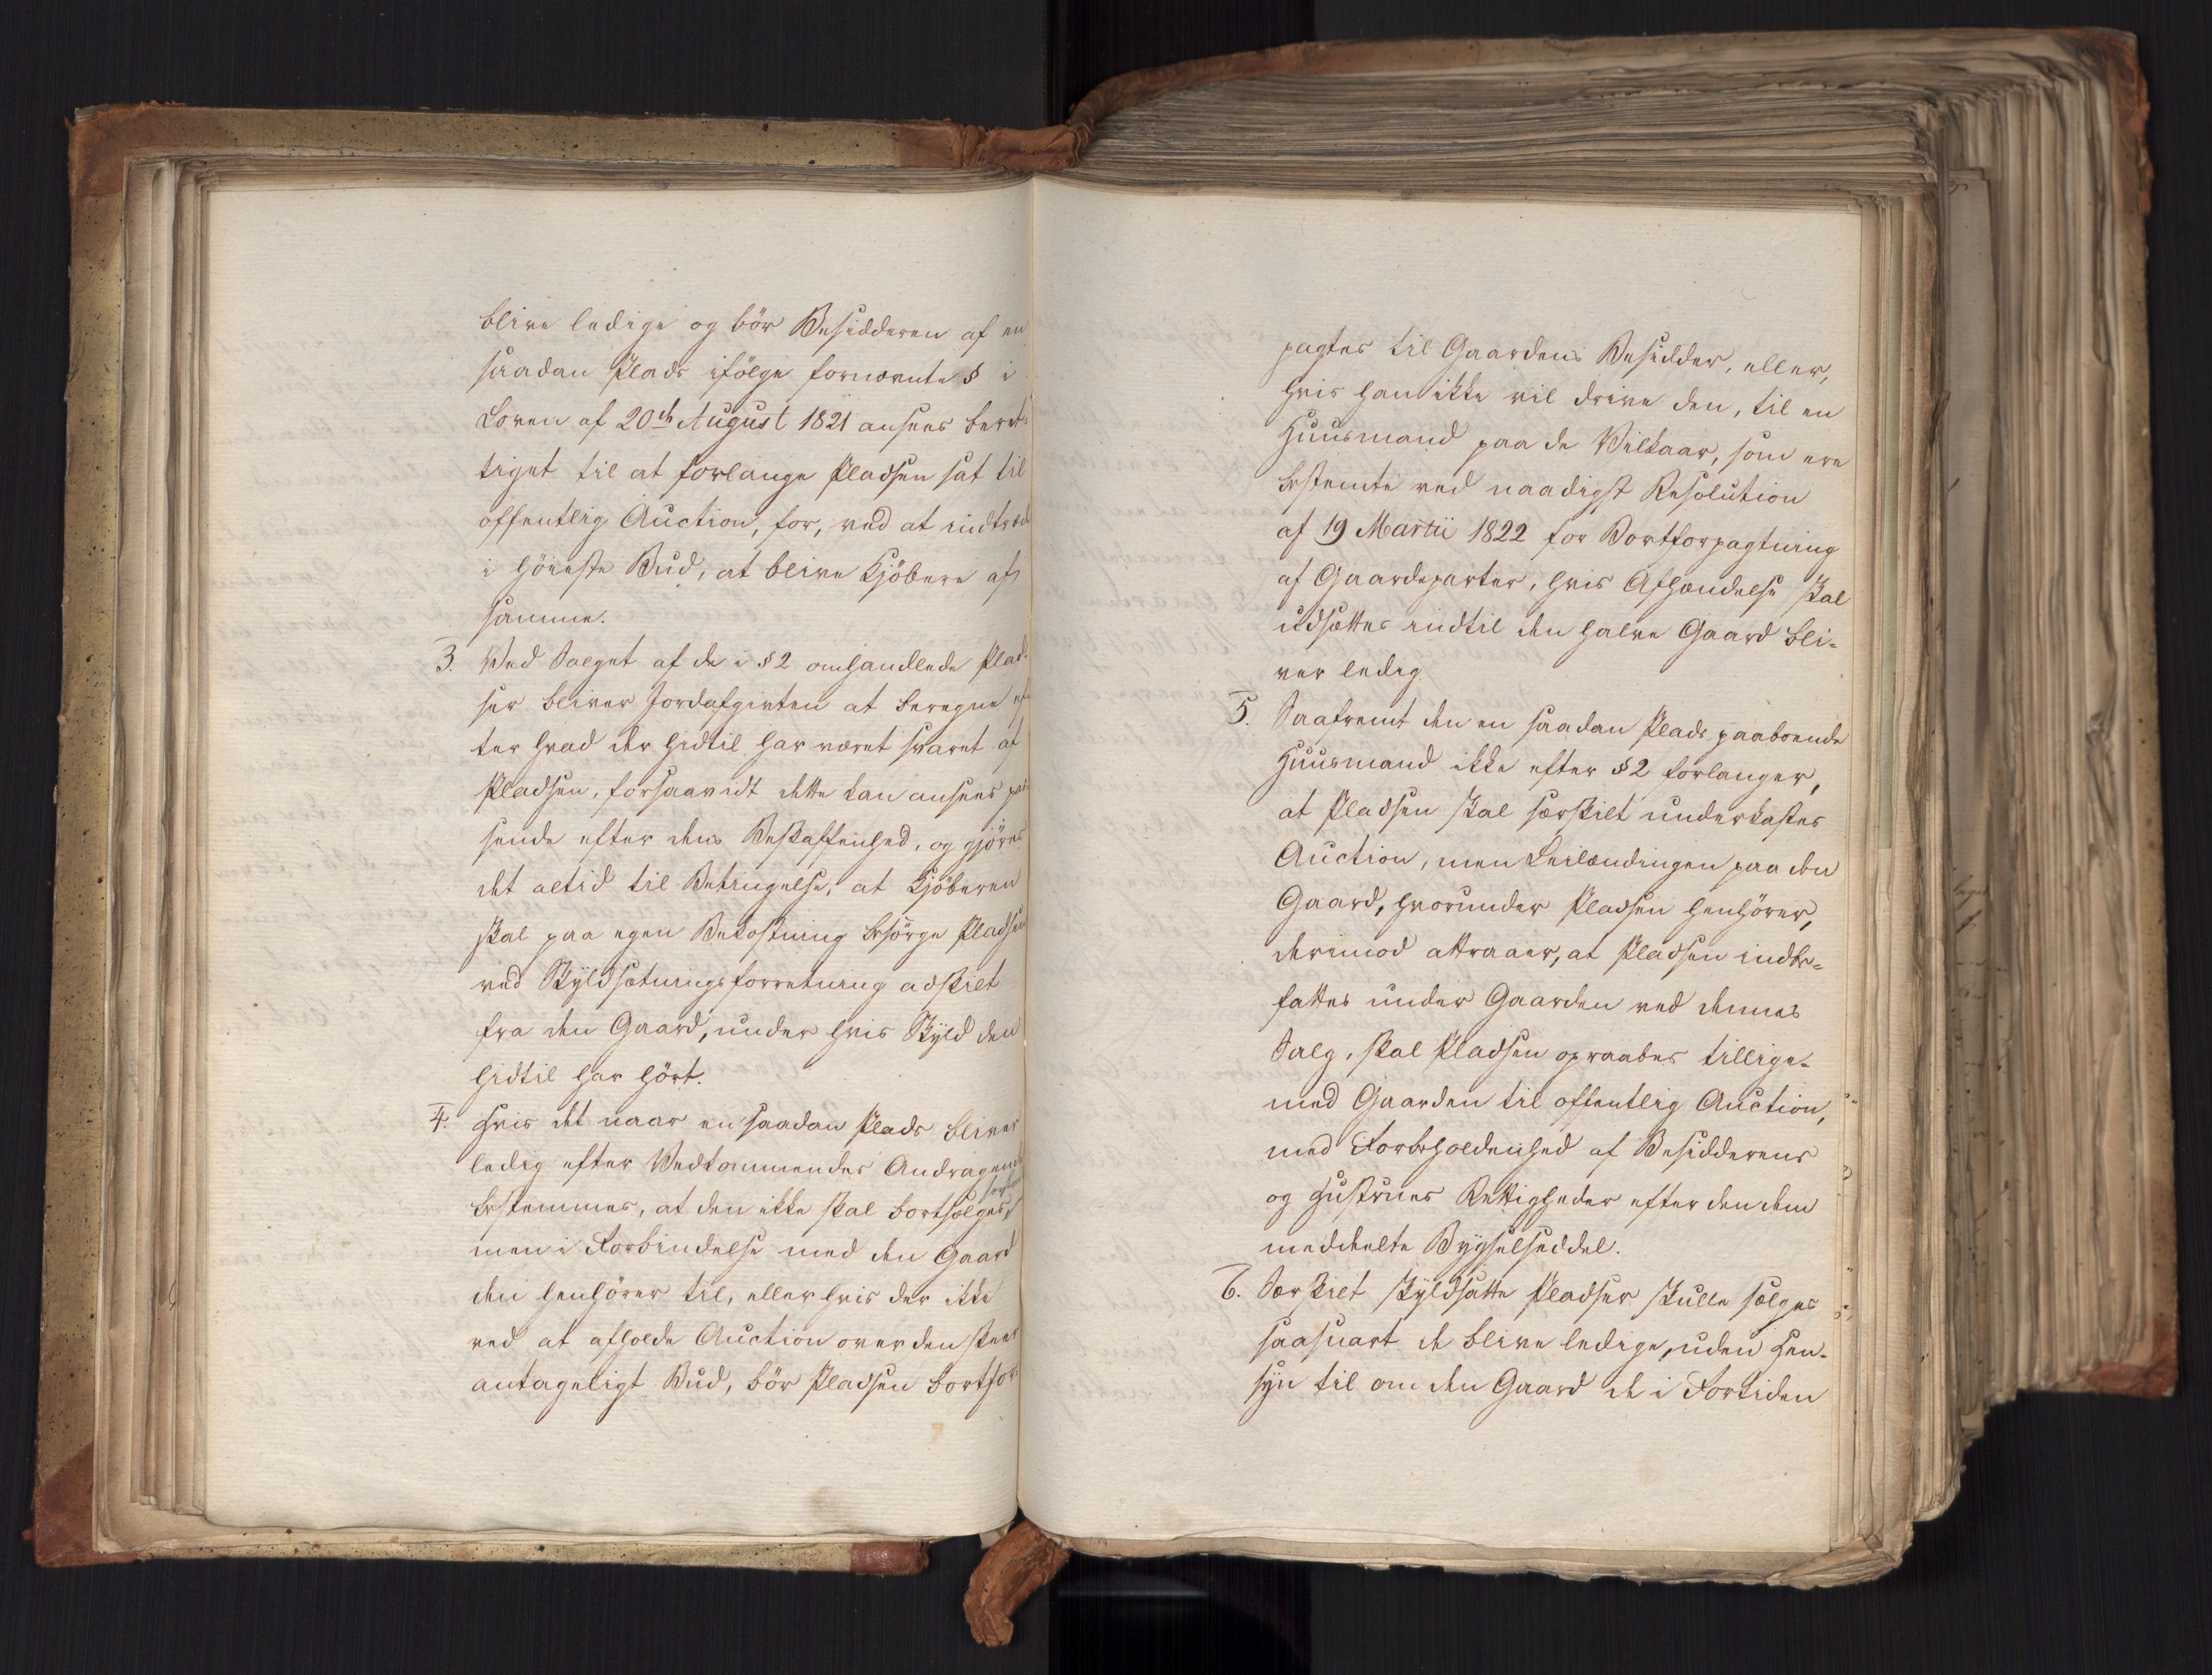 blive ledige og bør Besidderen af en
saadan Plads ifölge fornævnte § i
Loven af 20de August 1821 ansees beret-
tiget til at forlange Pladsen sat til
offentlig Auction, for, ved at indtræde
i höieste Bud, at blive Kjöbere af
samme.
3. Ved Salget af de i § 2 omhandlede Plad-
ser bliver Jordafgivten at beregne ef-
ter hvad der hidtil har været svaret af
Pladsen, forsaavidt dette kan ansees pas-
sende efter dens Beskaffenhed, og gjöres
det altid til Betingelse, at Kjöberen
skal paa egen Bekostning besörge Pladsen
ved Skyldsætningsforretning adskilt
fra den Gaard, under hvis Skyld den
hidtil har hört.
4. Hvis det naar en saadan Plads bliver
ledig efter Vedkommendes Andragende
bestemmes, at den ikke skal bortsælges
men i Forbindelse med den Gaard
den henhörer til, eller hvis der ikke
ved at afholde Auction over den skeer
antageligt Bud, bör Pladsen bortfor-
pagtes til Gaardens Besidder, eller,
hvis han ikke vil drive den, til en
Huusmand paa de Vilkaar, som ere
bestemte ved naadigst Resolution
af 19 Martii 1822 for Bortforpagtning
af Gaardeparter, hvis Afhændelse skal
udsættes indtil den halve Gaard bli-
ver ledig
5. Saafremt den en saadan Plads paaboende
Huusmand ikke efter § 2 forlanger,
at Pladsen skal særskilt underkastes
Auction, men Leilændingen paa den
Gaard, hvorunder Pladsen henhörer,
derimod attraaer, at Pladsen indbe-
fattes under Gaarden ved dennes
Salg, skal Pladsen opraabes tillige-
med Gaarden til offentlig Auction,
med Forbeholdenhed af Besidderens
og Hustrues Rettigheder efter den dem
meddeelte Bygselseddel.
6. Særskilt skyldsatte Pladser skulle sælges
saasnart de blive ledige, uden Hen-
syn til om den Gaard de i Fortiden